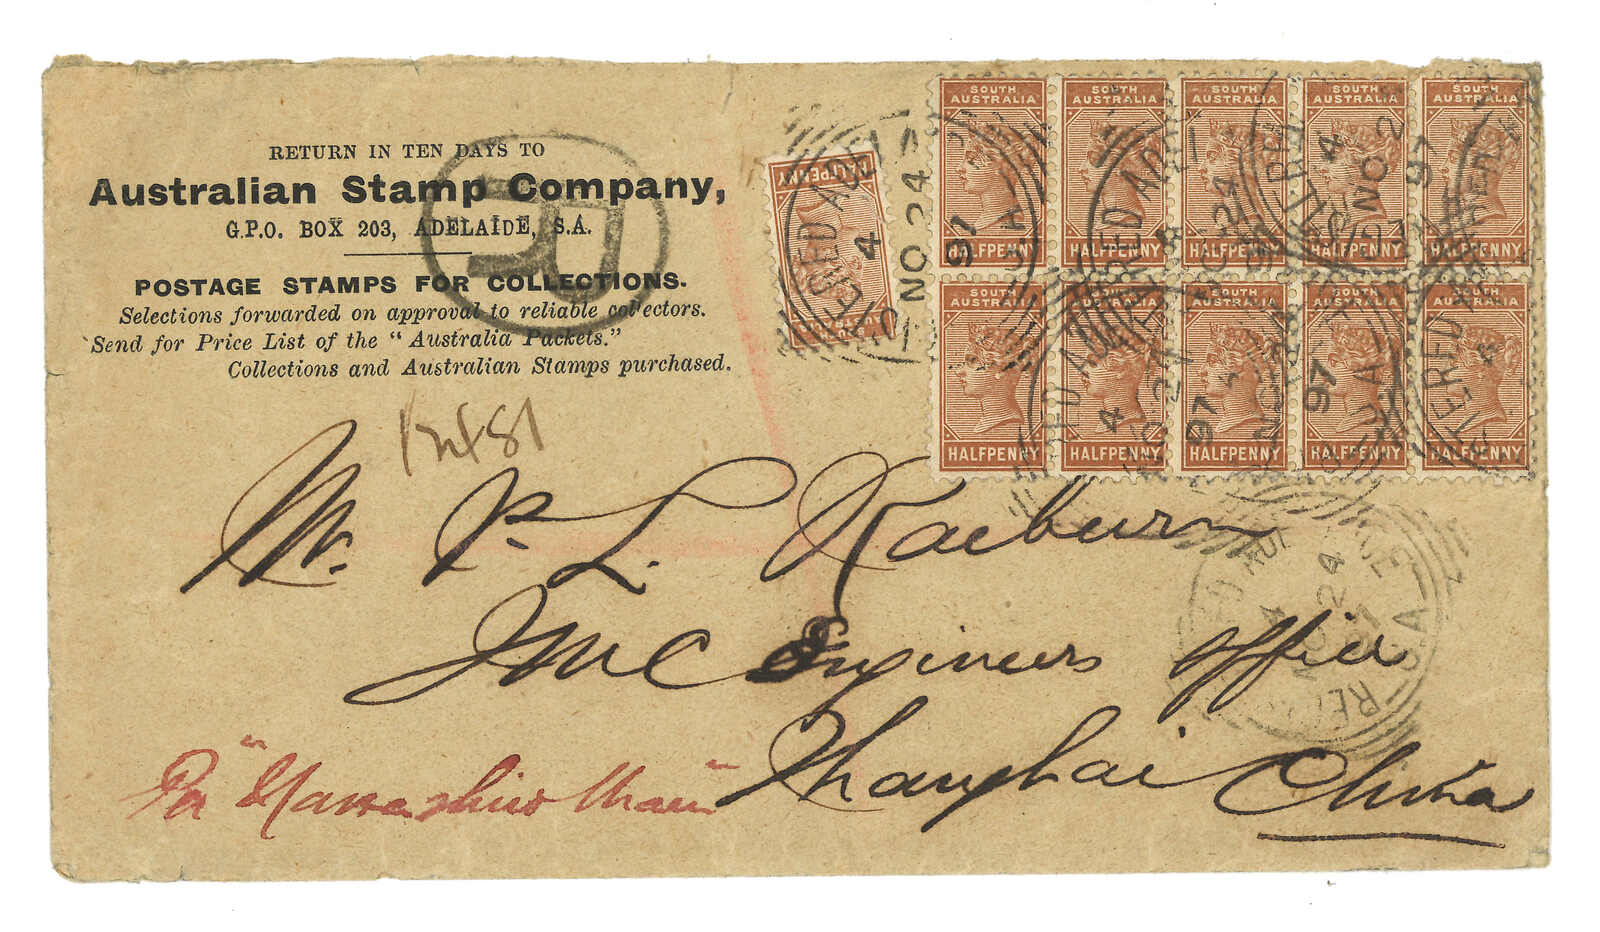 RETURN IN TEN DAYS TO
Australian Stamp Company,
G.P.O. BOX 203, ADELAIDE, S.A.
POSTAGE STAMPS FOR COLLECTIONS.
Selections forwarded on approval to reliable collectors.
Send for Price List of the "Australia Packets."
Collections and Australian Stamps purchased.
R
Mr. P. L. Raeburn
I M C Engineers Office
Shanghai China
Per
HALFPENNY
4
NO 24
97
SOUTH AUSTRALIA SOUTH AUSTRALIA SOUTH AUSTRALIA SOUTH AUSTRALIA SOUTH AUSTRALIA
HALFPENNY HALFPENNY HALFPENNY HALFPENNY HALFPENNY
SOUTH AUSTRALIA SOUTH AUSTRALIA SOUTH AUSTRALIA SOUTH AUSTRALIA SOUTH AUSTRALIA
HALFPENNY HALFPENNY HALFPENNY HALFPENNY HALFPENNY
4
NO 24
97